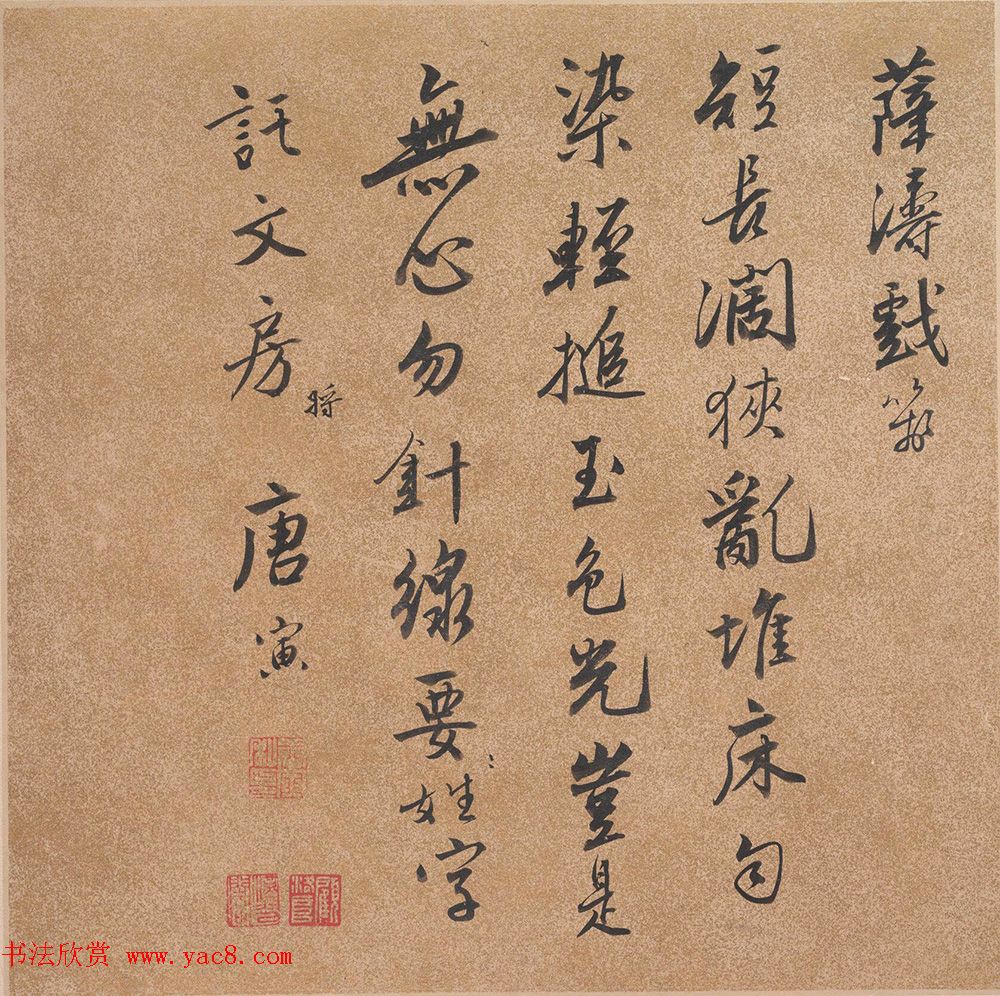 薛濤戲箋
短長濶狹亂堆床勻
染輕搥玉色光豈是
無心勿針線要姓字
託文房將
唐寅
书法欣赏 www.yac8.com